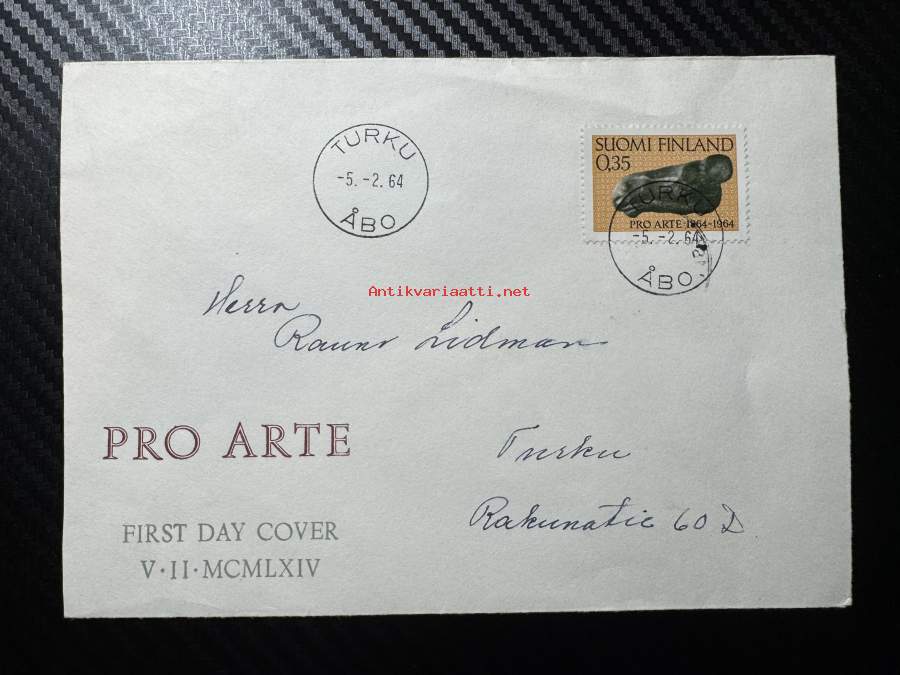 TURKU
-5.-2.64
ÅBO
SUOMI FINLAND
0,35
PRO ARTE·1864-1964
TURKU
-5.-2.64
ÅBO
Antikvariaatti.net
Herra
Rauno Lidman
PRO ARTE
Turku
Rakunatie 60 D
FIRST DAY COVER
V·II·MCMLXIV